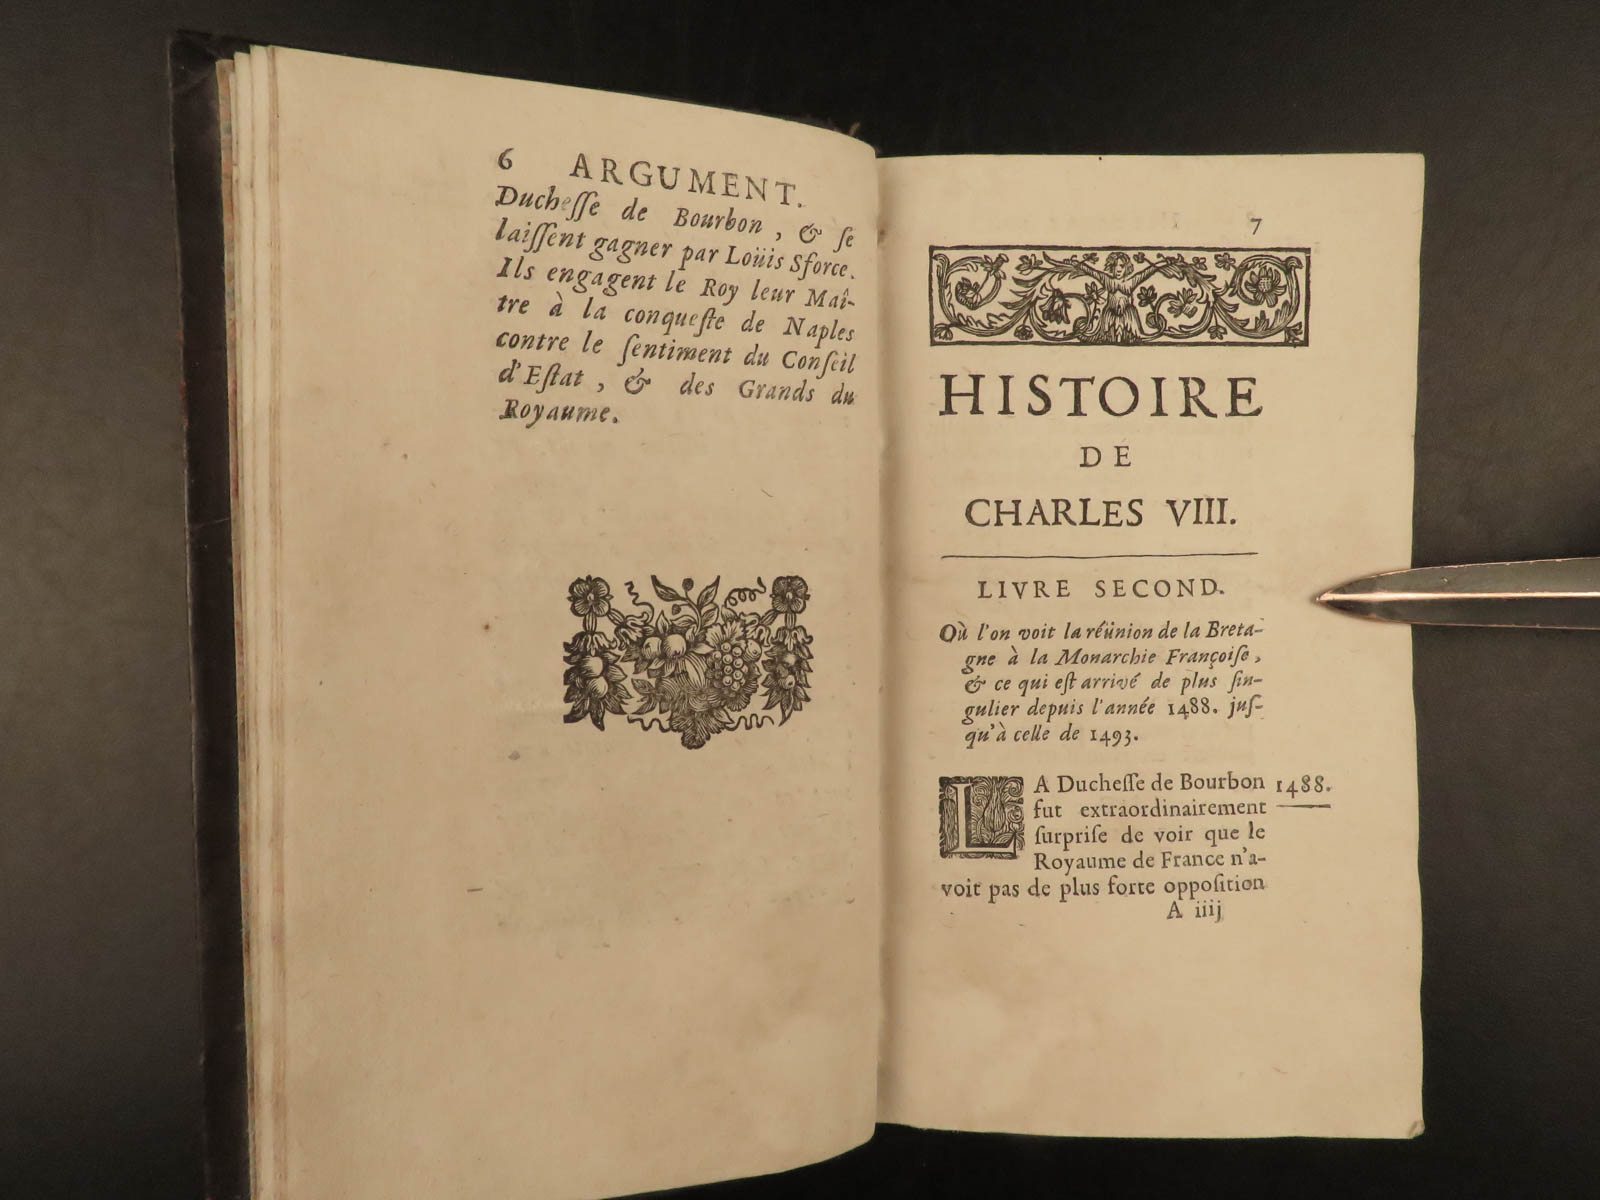 6 ARGUMENT.
Ducheſſe de Bourbon, & ſe
laiſſent gagner par Loüis Sforce.
Ils engagent le Roy leur Maî-
tre à la conqueſte de Naples
contre le ſentiment du Conſeil
d'Eſtat, & des Grands du
Royaume.
7
HISTOIRE
DE
CHARLES VIII.
LIVRE SECOND.
Où l'on voit la réünion de la Breta-
gne à la Monarchie Françoiſe,
& ce qui eſt arrivé de plus ſin-
gulier depuis l'année 1488. juſ-
qu'à celle de 1493.
LA Ducheſſe de Bourbon 1488.
fut extraordinairement
ſurpriſe de voir que le
Royaume de France n'a-
voit pas de plus forte oppoſition
A iiij